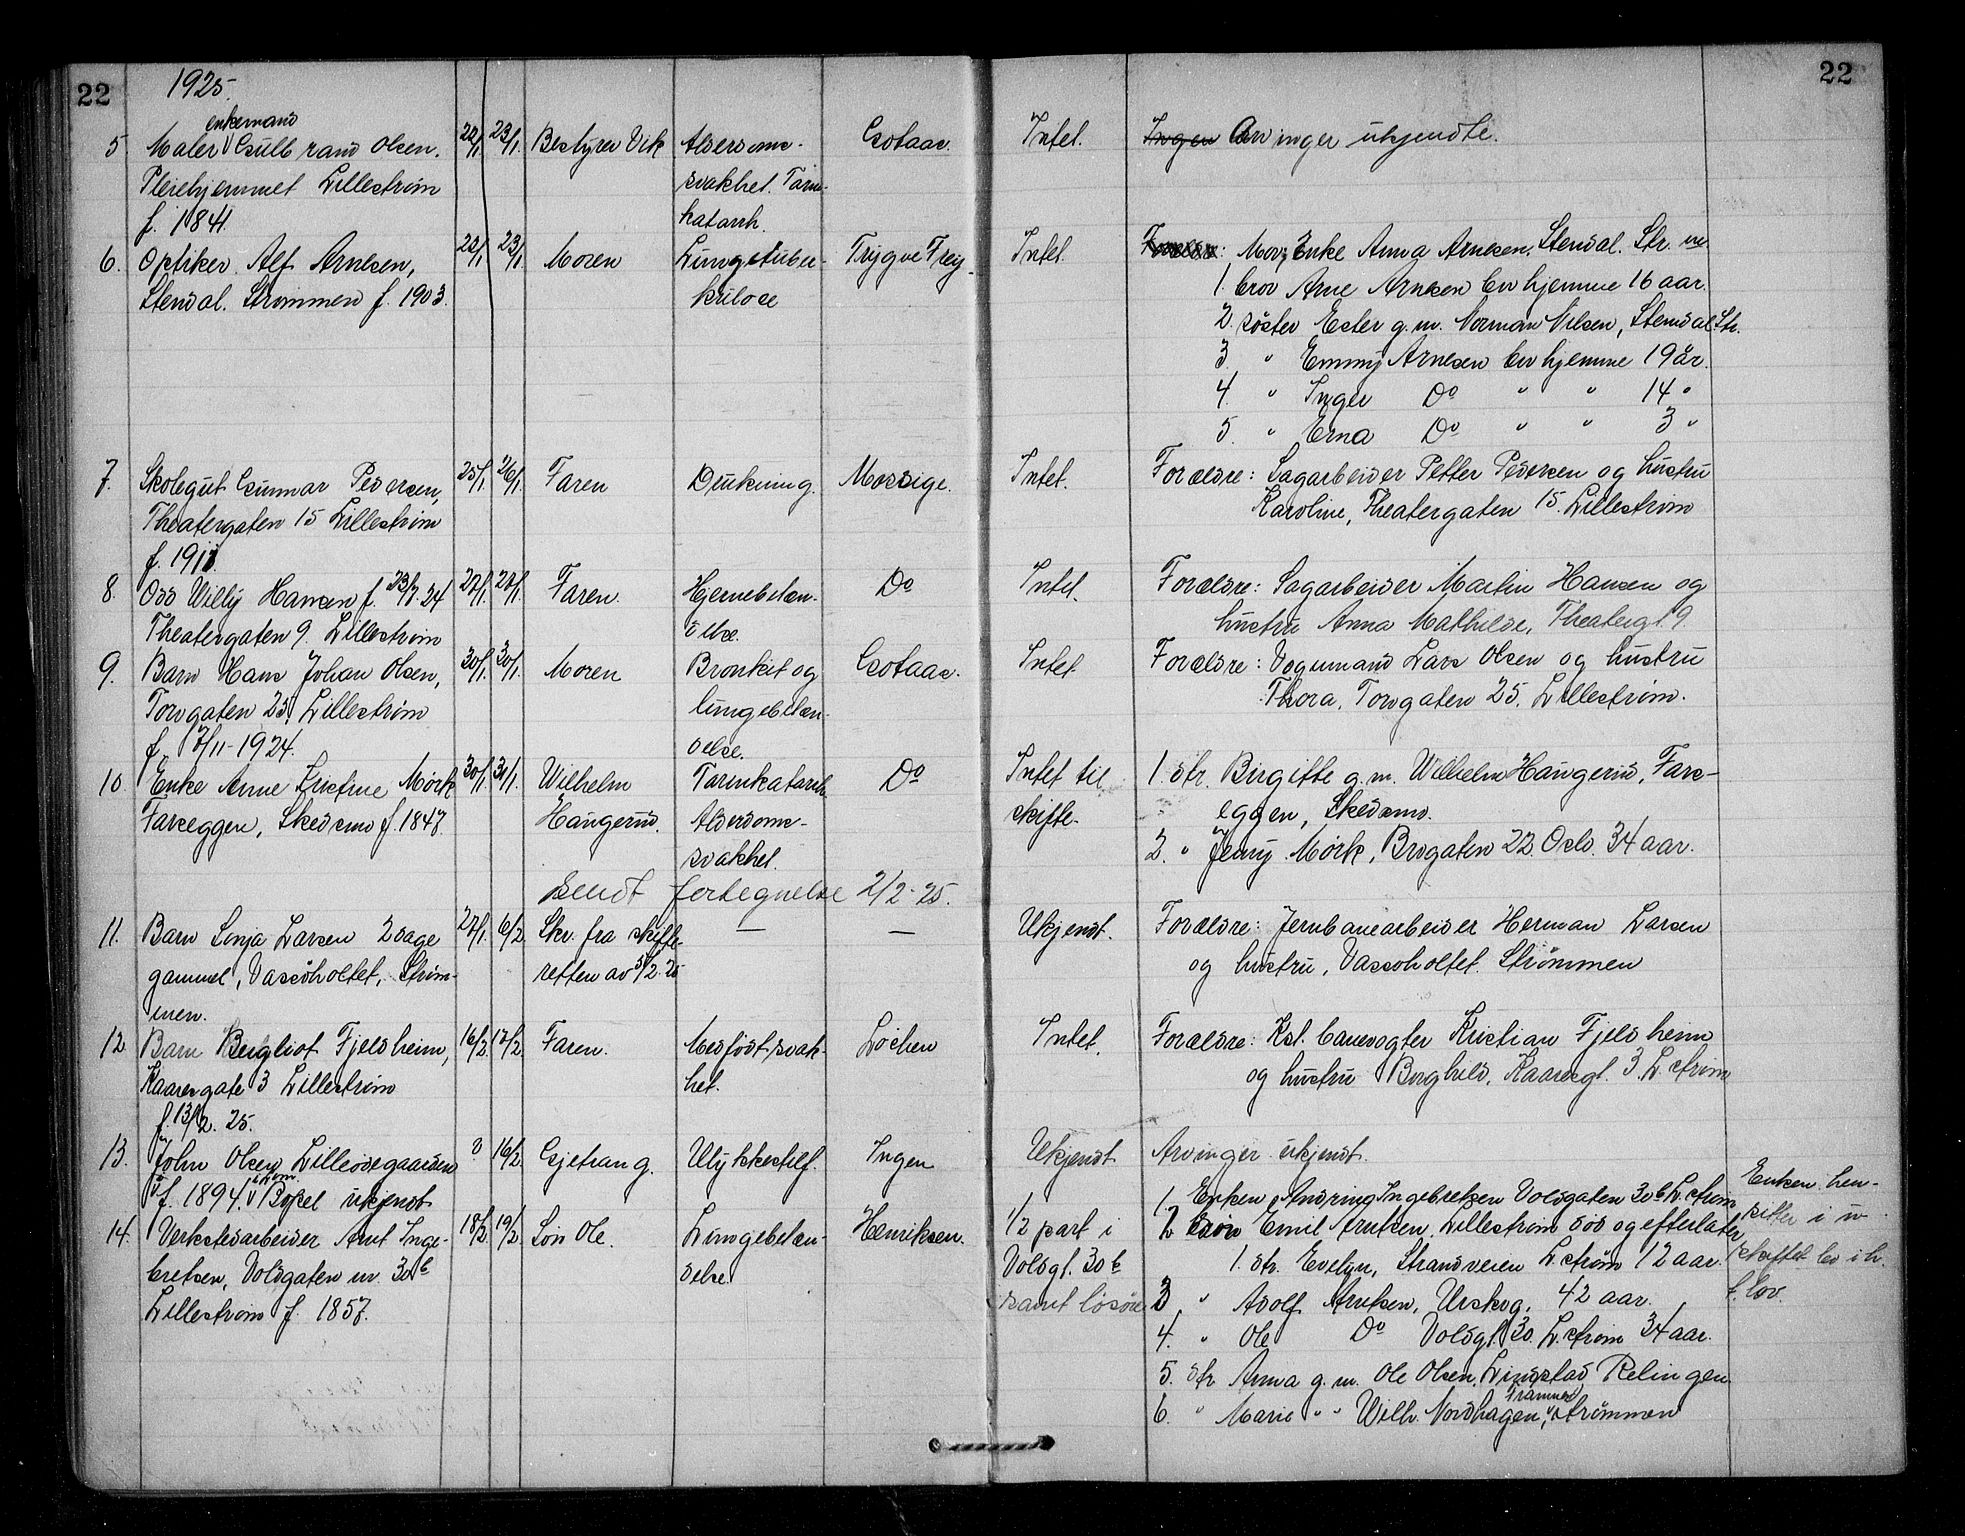 22
1925.
22
enkemand
5 Maler Gulbrand Olsen. 22/1 23/1 Bestyrer Vik Alderdoms- Gotaas. Intet. Ingen Arvinger ukjendte.
Pleiehjemmet Lillestrøm svakhet. Tarm-
f. 1841. katarrh.
6. Optiker Alf Arnesen, 22/1 23/1 Moren Lungetuber- Trygve Intet. Mor, Enke Anna Arnesen, Stendal. Str.
Stendal. Strømmen f. 1903. kulose 1. bror Arne Arnesen bor hjemme 16 aar.
2. søster Ester g.m. Norman Nilsen, Stendal. Str.
3 " Emmy Arnesen bor hjemme 19 år.
4. " Inger Do " " 14 "
5. " Erna Do " " 3 "
7. Skolegut Gunnar Pedersen, 25/1 26/1 Faren Drukning. Mossige. Intet. Forældre: Sagarbeider Petter Pedersen og hustru
Theatergaten 15 Lillestrøm Karoline, Theatergaten 15. Lillestrøm
f. 1911.
8. Odd Willy Hansen f. 23/7.24 27/1 27/1 Faren. Hjernebetæn- Do Intet. Forældre: Sagarbeider Martin Hansen og
Theatergaten 9. Lillestrøm delse. hustru Anna Mathilde, Theatergt. 9.
9. Barn Hans Johan Olsen, 30/1 30/1 Moren Bronkit og Gotaas. Intet Forældre: Vognmand Lars Olsen og hustru
Torvgaten 25, Lillestrøm lungebetæn- Thora, Torvgaten 25. Lillestrøm.
f. 7/11-1924. delse.
10 Enke Anne Kristine Mørk 30/1 31/1 Wilhelm Tarmkatarrh. Do Intet til 1. dtr. Birgitte g.m. Wilhelm Haugerud, Fars-
Farseggen, Skedsmo f. 1847. Haugerud. Alderdoms- skifte. eggen, Skedsmo.
svakhet. 2. " Jenny Mørk, Brogaten 22. Oslo. 34 aar.
Sendt fortegnelse 2/2-25.
11. Barn Sonja Larsen 2 dage 27/1 6/2 Skr. fra skifte- — — Ukjendt. Forældre: Jernbanearbeider Herman Larsen
gammel, Vassoholtet, Strøm- retten av 5/2 25 og hustru, Vassoholtet. Strømmen
men.
12. Barn Bergliot Fjeldheim, 16/2 17/2 Faren. Medfødt svak- Løchen Intet. Forældre: Kst. banevogter Kristian Fjeldheim
Kaaresgate 3 Lillestrøm het. og hustru Borghild, Kaaresgt. 3. L.strøm
f. 13/2. 25.
13. John Olsen Lilleødegaarden ? 16/2 Gjetrang. Ulykkestilf. Ingen Ukjendt Arvinger ukjendt.
f. 1894. Bopel ukjendt
14. Verkstedarbeider Arnt Inge- 18/2 19/2 Søn Ole. Lungebetæn- Henriksen. 1/2 part i 1. Enken Andrine Ingebretsen Voldgaten 30b L.strøm Enken hen-
bretsen, Voldgaten nr. 30b delse. Voldgt. 30b 2 søn Emil Arntsen, Lillestrøm død og efterlater sitter i u-
Lillestrøm f. 1857. samt løsøre 1. dtr. Evelyn, Strandveien L.strøm 12 aar. skiftet bo i h.
3 " Adolf Arntsen, Urskog, 42 aar. t. lov.
4. " Ole Do Voldgt. 30. L.strøm 34 aar.
5. dtr Anna g.m. Ole Olsen, Lundstad Relingen
Trammen
6. " Marie " " Wilh. Nordhagen, Strømmen